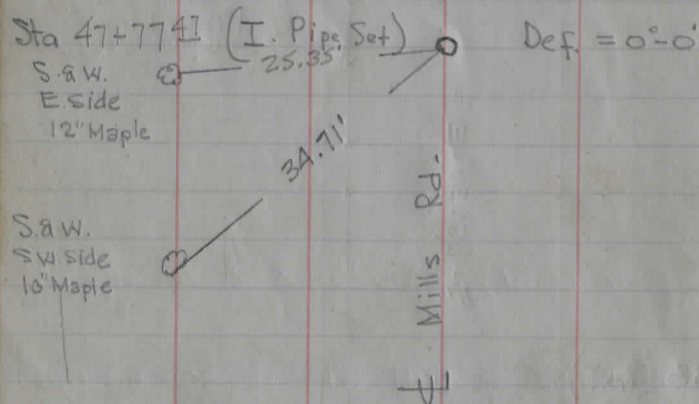 Sta 47+77 41 (I. Pipe Set) Def. = 0°-0'
S.&W. 25.35'
E. Side
12" Maple
34.71'
S.&W.
SW. Side
10" Maple
℄ Mills Rd.